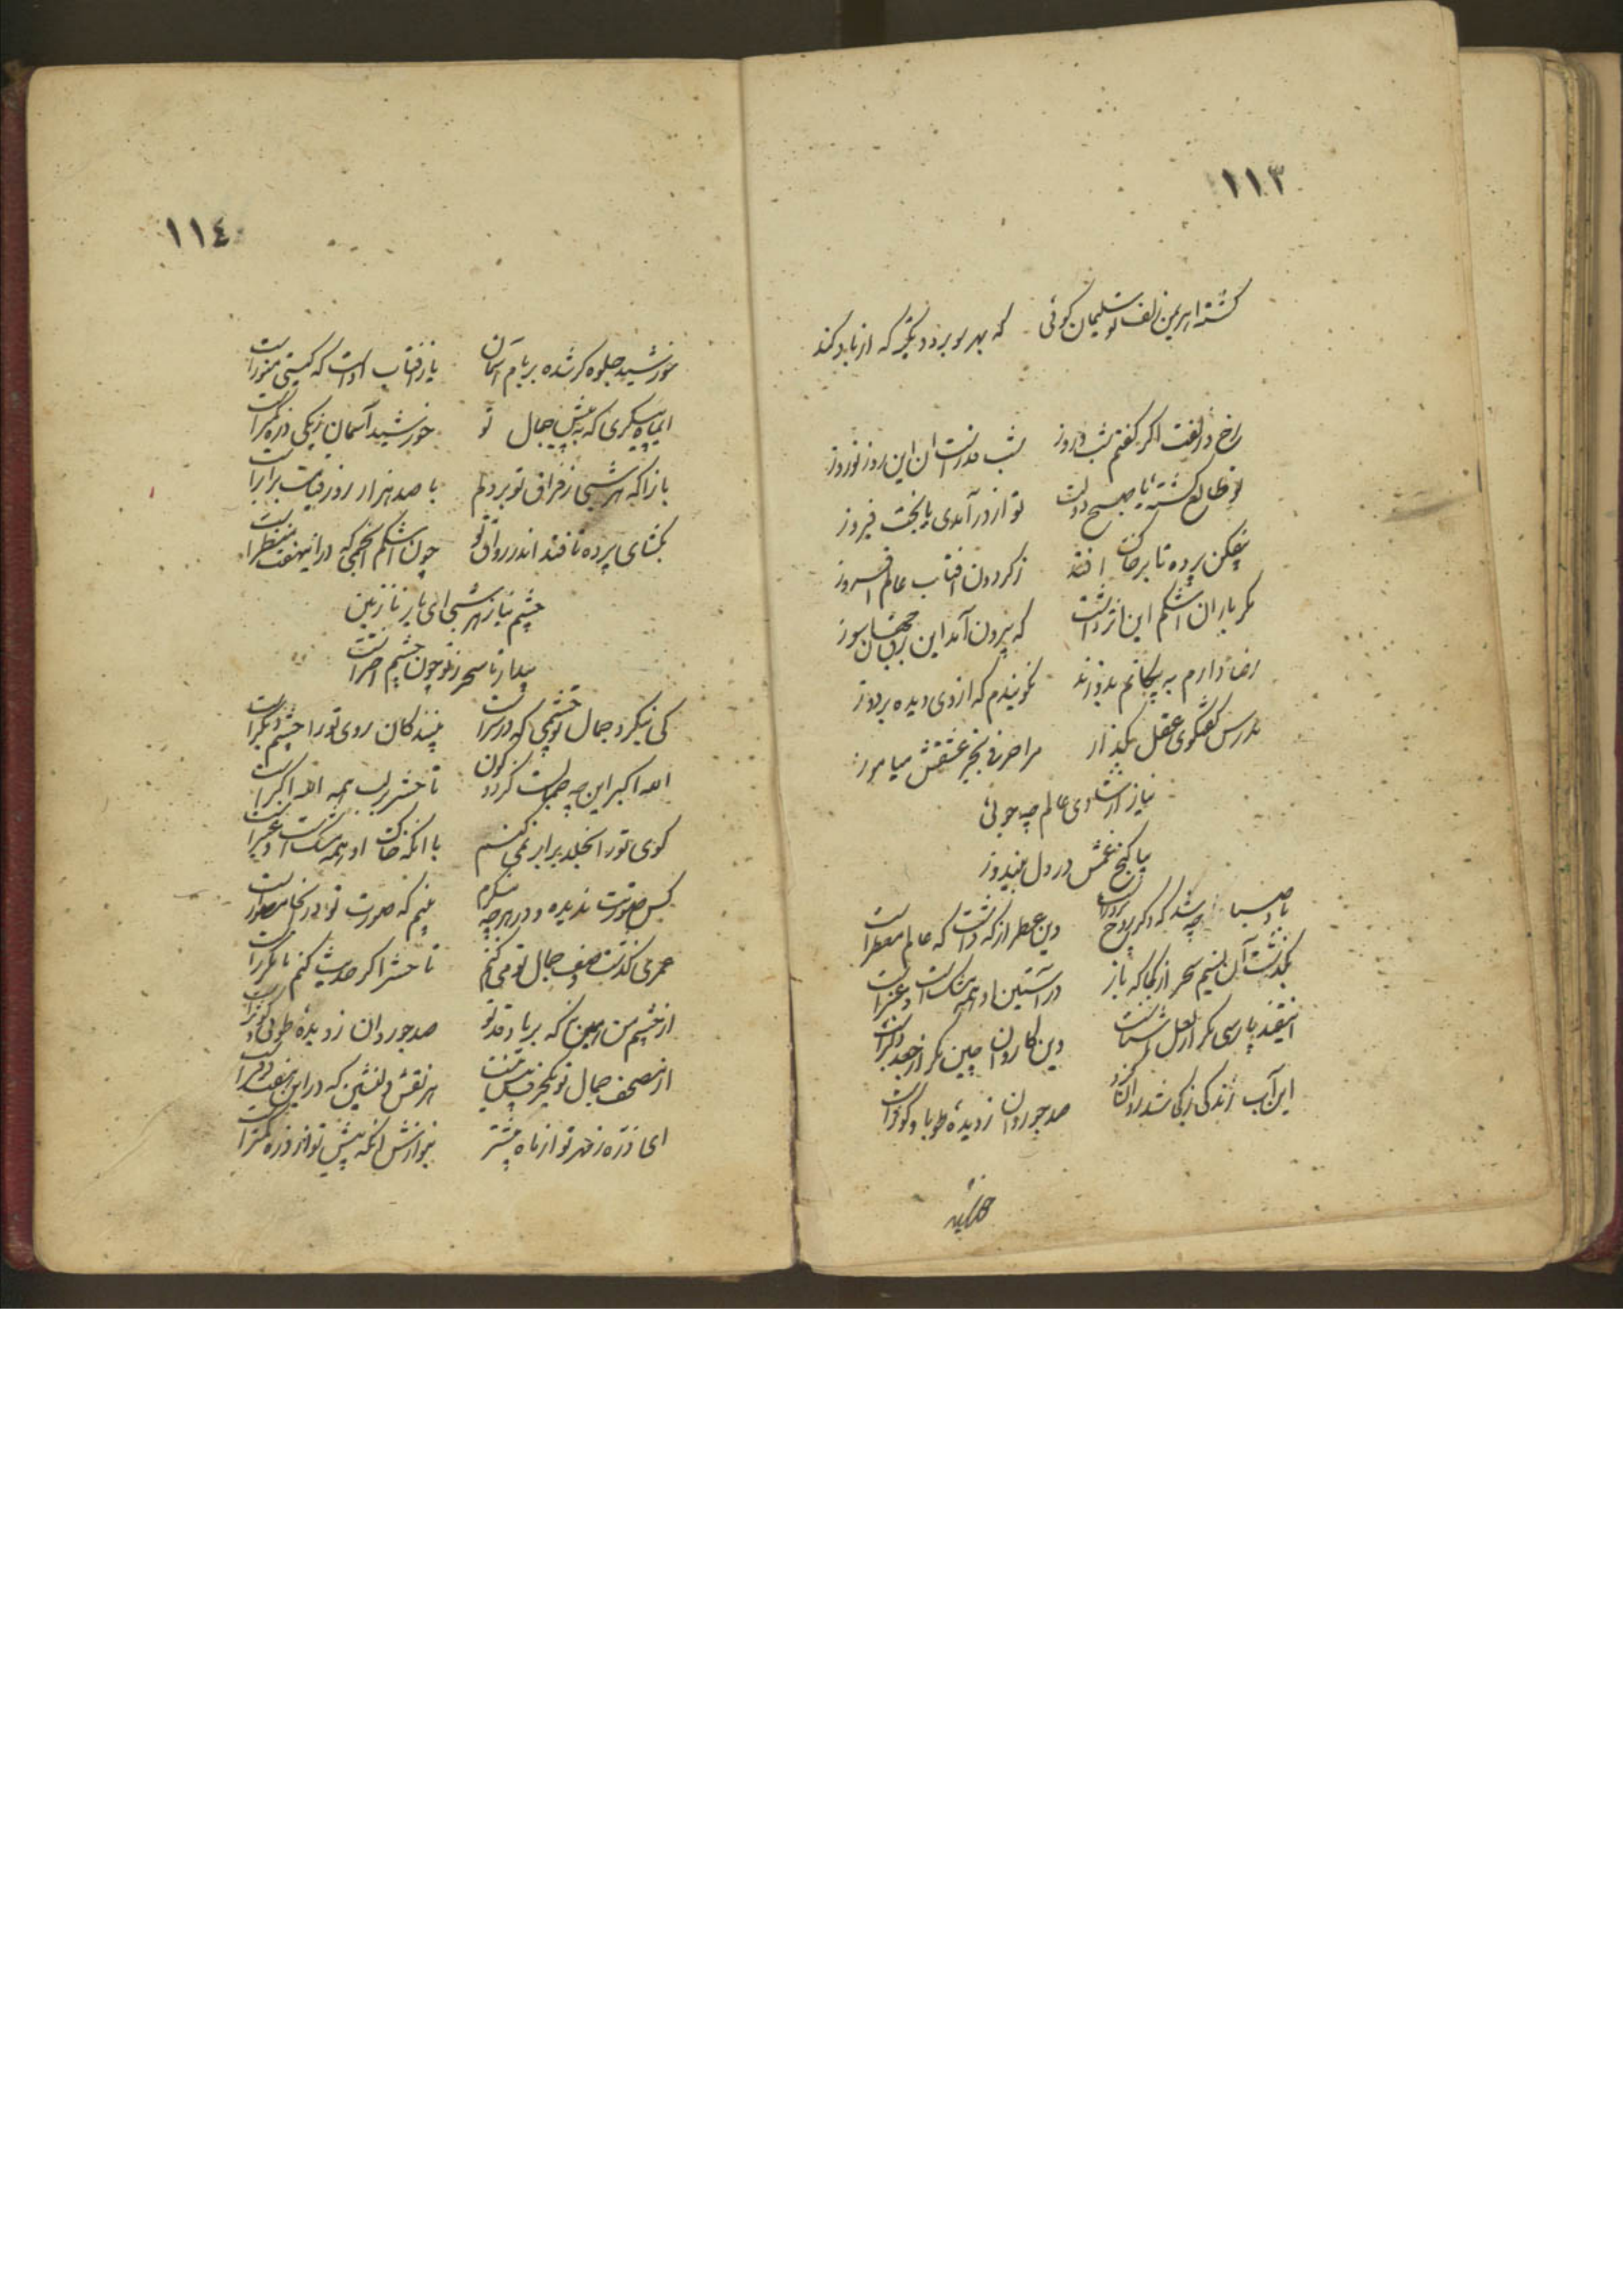 ١١٣
گشته اهرمن زلف تو سلیمان گوئی که بهر سو برد دیگر که از باد کند
رخ و زلفت اگر گفتم شب و روز شب قدرست آن این روز نوروز
تو طالع گشته یا صبح دولت تو از در آمدی یا بخت فیروز
بیفکن پرده تا بر خاک افتد ز گردون افتاب عالم افروز
مگر باران اشکم این اثر داشت که بیرون آمد این برق جهانسوز
رضا دارم به پیکانم بدوزند نگویندم که از وی دیده بردوز
بدرس گفتگوی عقل بگذار مرا حرفی بجز عشقش میاموز
نیاز از شادی عالم چه جوئی
بیا گنج غمش در دل بیندوز
باد صبا چه شد که دگر روح پرور است وین عطر از که داشت که عالم معطر است
بگذشت آن نسیم سحر از کجا که باز در آستین او همه مشک است و عنبر است
این قند پارسی مگر از لعل شماست وین کاروان چین مگر از جعد دلبر است
این آب زندگی ز کجا شد روان کزو صد جو روان ز دیده طوبا و کوثر است
خورشید
١١٤
خورشید جلوه گر شده بر بام آسمان یا ز افتاب اوست که گیتی منور است
ایماه پیکری که به پیش جمال تو خورشید آسمان ز یکی ذره کمتر است
باز آ که هر شبی ز فراق تو بر دلم با صد هزار روز قیامت برابر است
بگشای پرده تا فتد اندر رواق تو چون اشکم انجمی که در این هفت منظر است
چشم نیاز هر شبی ای یار نازنین
بیدار تا سحر ز تو چون چشم اختر است
کی بنگرد جمال تو چشمی که در سر است بینندگان روی تو را چشم دیگر است
الله اکبر این چه جمالست کز درون تا حشر بر لب همه الله اکبر است
کوی تو را بخلد برابر نمی کنم با انکه خاک او همه مشک است و عنبر است
کس صورتت ندیده و در هر چه بنگرم بینم که صورت تو در انجا مصور است
عمری گذشت وصف جمال تو می کنم تا حشر اگر حدیث کنم نامکرر است
از چشم من ببین که بر یاد قد تو صد جو روان ز دیده طوبی و کوثر است
از مصحف جمال تو یکحرف بیش نیست هر نقش دلنشین که در این هفت دفتر است
ای ذره ز مهر تو از ماه بیشتر بنوازش انکه پیش تو از ذره کمتر است